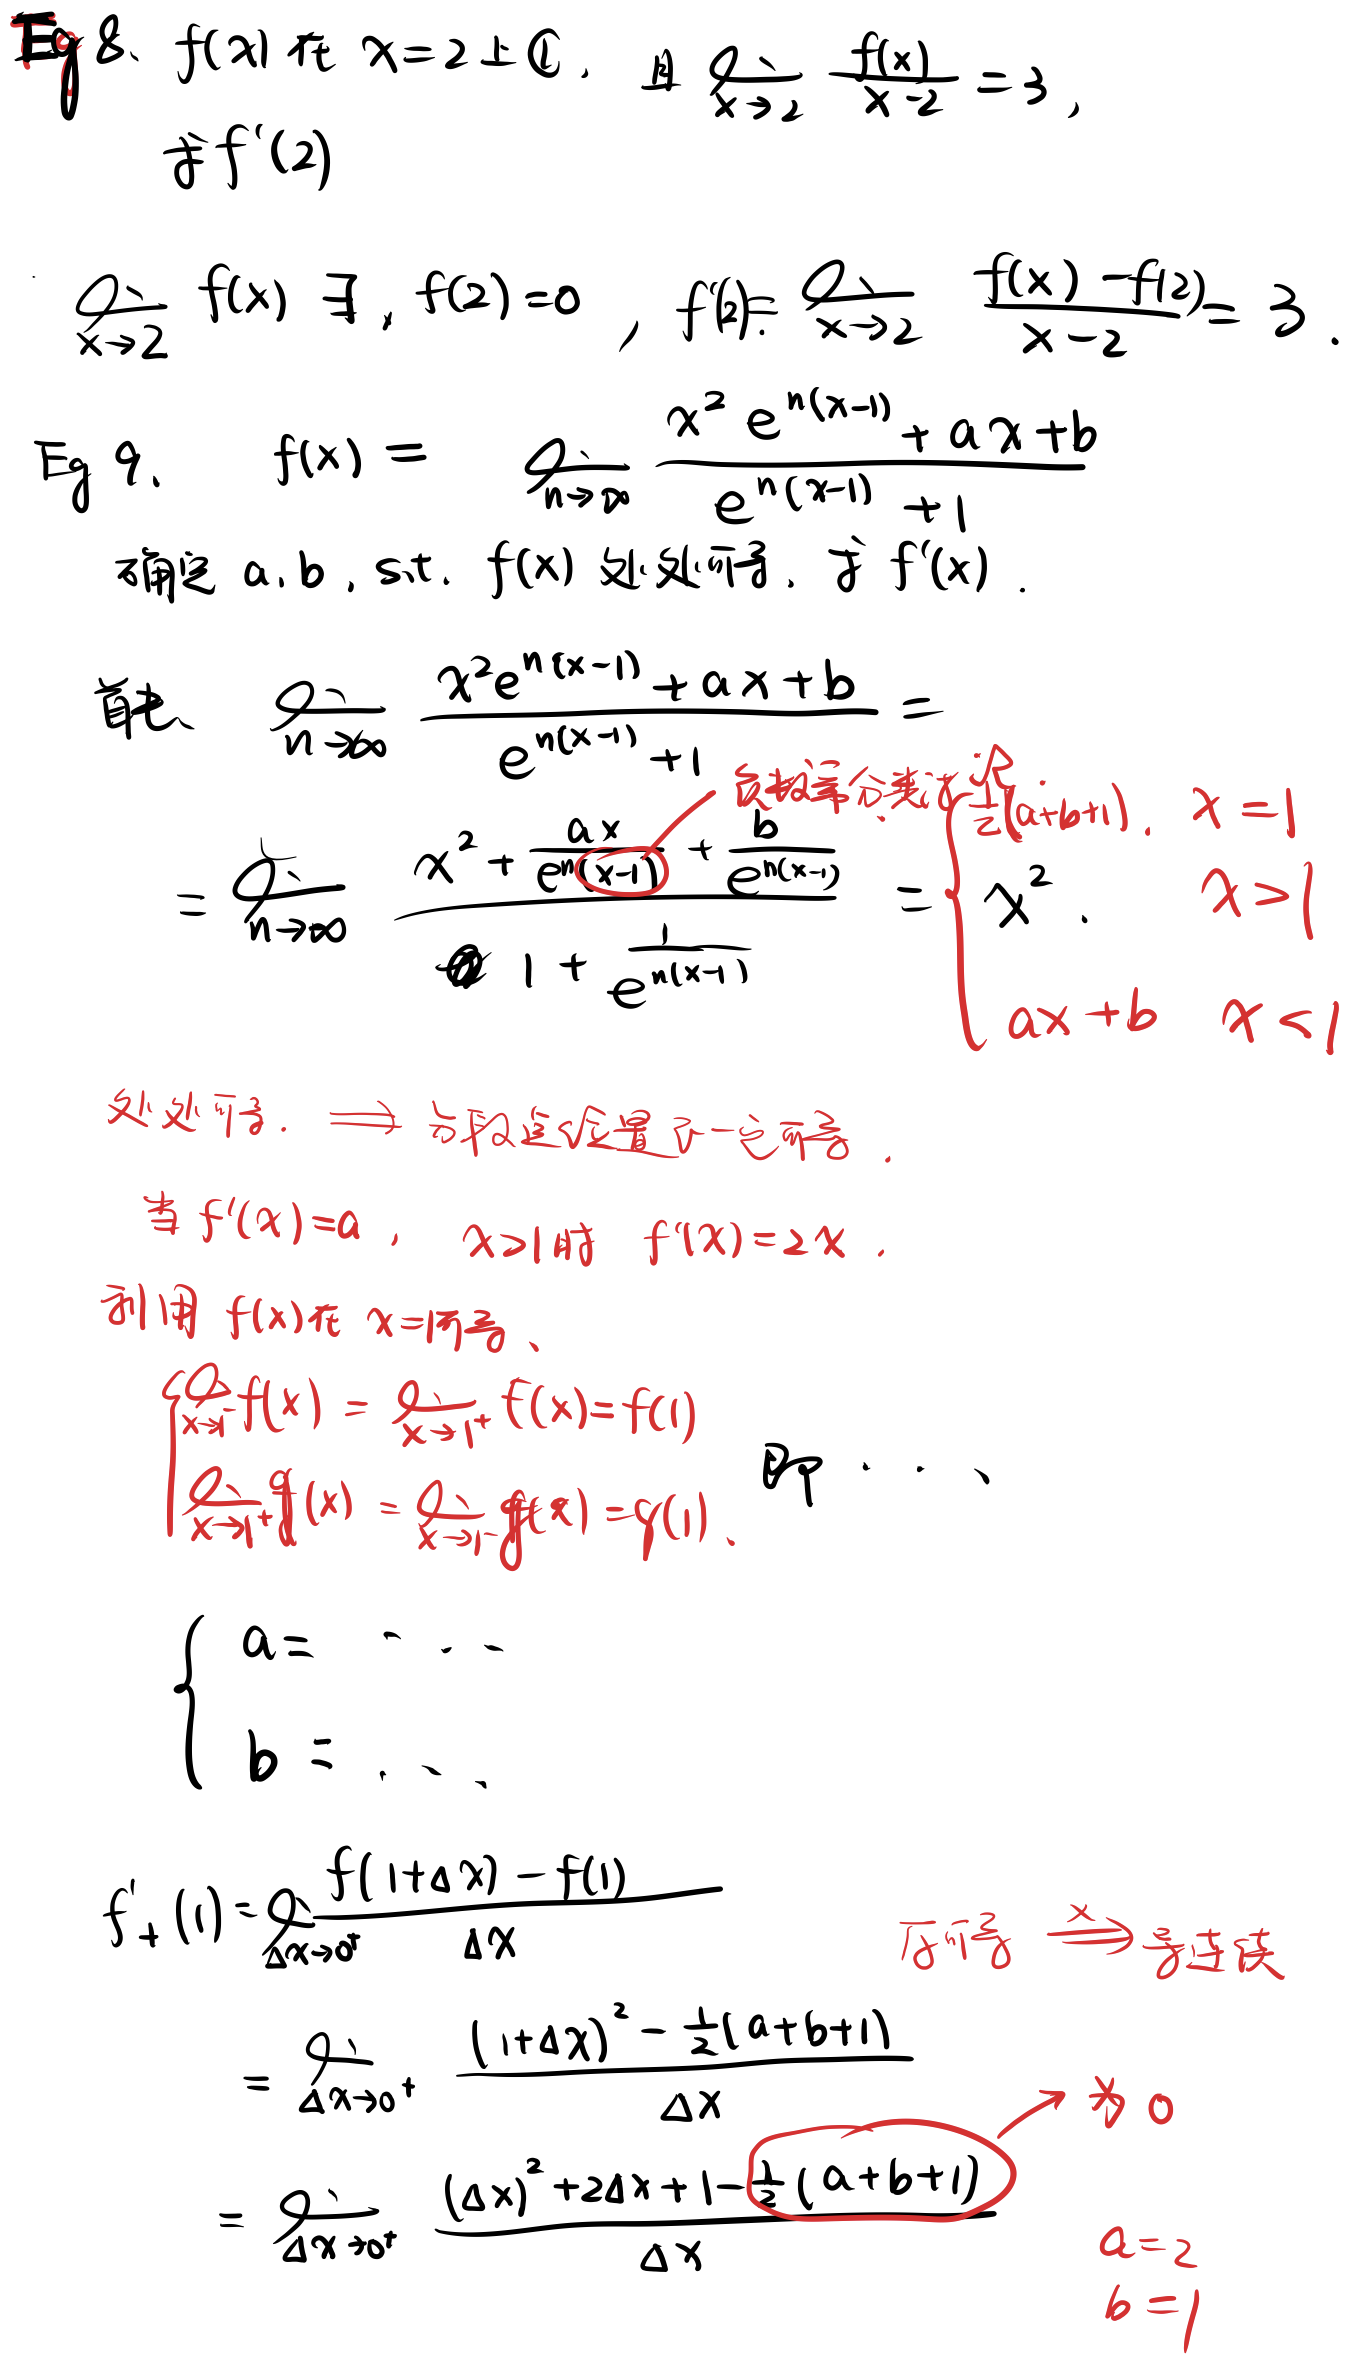 Eg 8. f(x) 在 x=2 上①. 且 lim x→2 f(x)/(x-2) = 3,
求 f'(2)
lim x→2 f(x) ∃, f(2)=0, f'(2)= lim x→2 (f(x)-f(2))/(x-2) = 3.
Eg 9. f(x) = lim n→∞ (x² e^{n(x-1)} + ax+b)/(e^{n(x-1)} + 1)
确定 a.b, s.t. f(x) 处处可导. 求 f'(x).
首先、 lim n→∞ (x² e^{n(x-1)} + ax+b)/(e^{n(x-1)} + 1) =
分类
= lim n→∞ (x² + ax/e^{n(x-1)} + b/e^{n(x-1)})/(1 + 1/e^{n(x-1)}) = { ½(a+b+1). x=1
x². x>1
ax+b x<1
处处可导. ⟹ 分段点位置 一定可导.
当 f'(x)=a, x>1时 f'(x)=2x.
利用 f(x)在 x=1可导、
{ lim x→1⁻ f(x) = lim x→1⁺ f(x) = f(1)
lim x→1⁺ g(x) = lim x→1⁻ g(x) = g(1). 即 ···、
{ a= ···
b = ···
f'₊(1) = lim Δx→0⁺ (f(1+Δx) - f(1))/Δx
可导 ⟹ × 导连续
= lim Δx→0⁺ ((1+Δx)² - ½(a+b+1))/Δx
= lim Δx→0⁺ ((Δx)² + 2Δx + 1 - ½(a+b+1))/Δx → 为 0
a=2
b=1